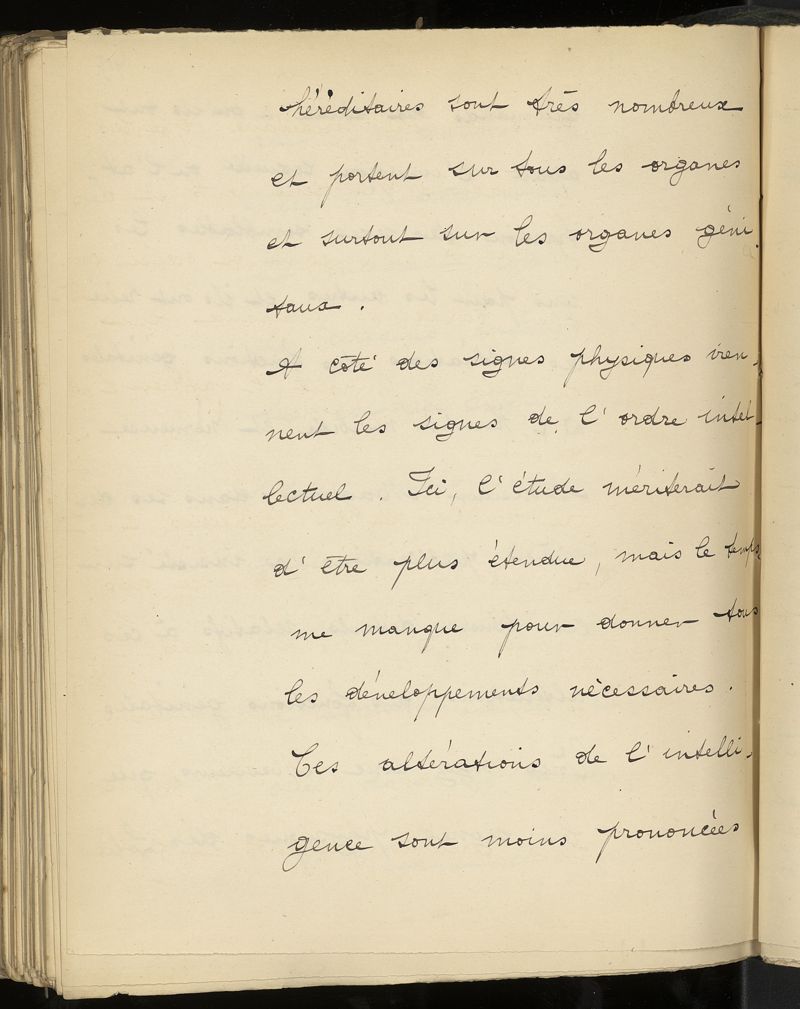 héréditaires sont très nombreux
et portent sur tous les organes
et surtout sur les organes géni-
taux.
A côté des signes physiques vien-
nent les signes de l'ordre intel-
lectuel. Ici, l'étude mériterait
d'être plus étendue, mais le temps
me manque pour donner tous
les développements nécessaires.
Ces altérations de l'intelli-
gence sont moins prononcées